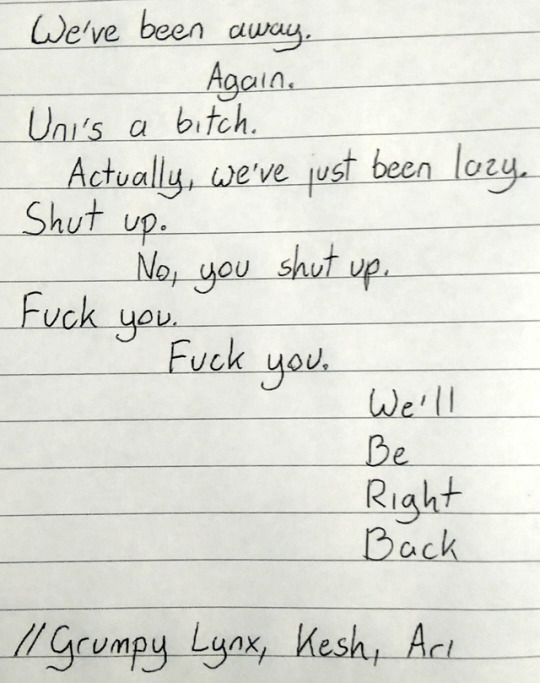 We've been away.
Again.
Uni's a bitch.
Actually, we've just been lazy.
Shut up.
No, you shut up.
Fuck you.
Fuck you.
We'll
Be
Right
Back
//Grumpy Lynx, Kesh, Ari